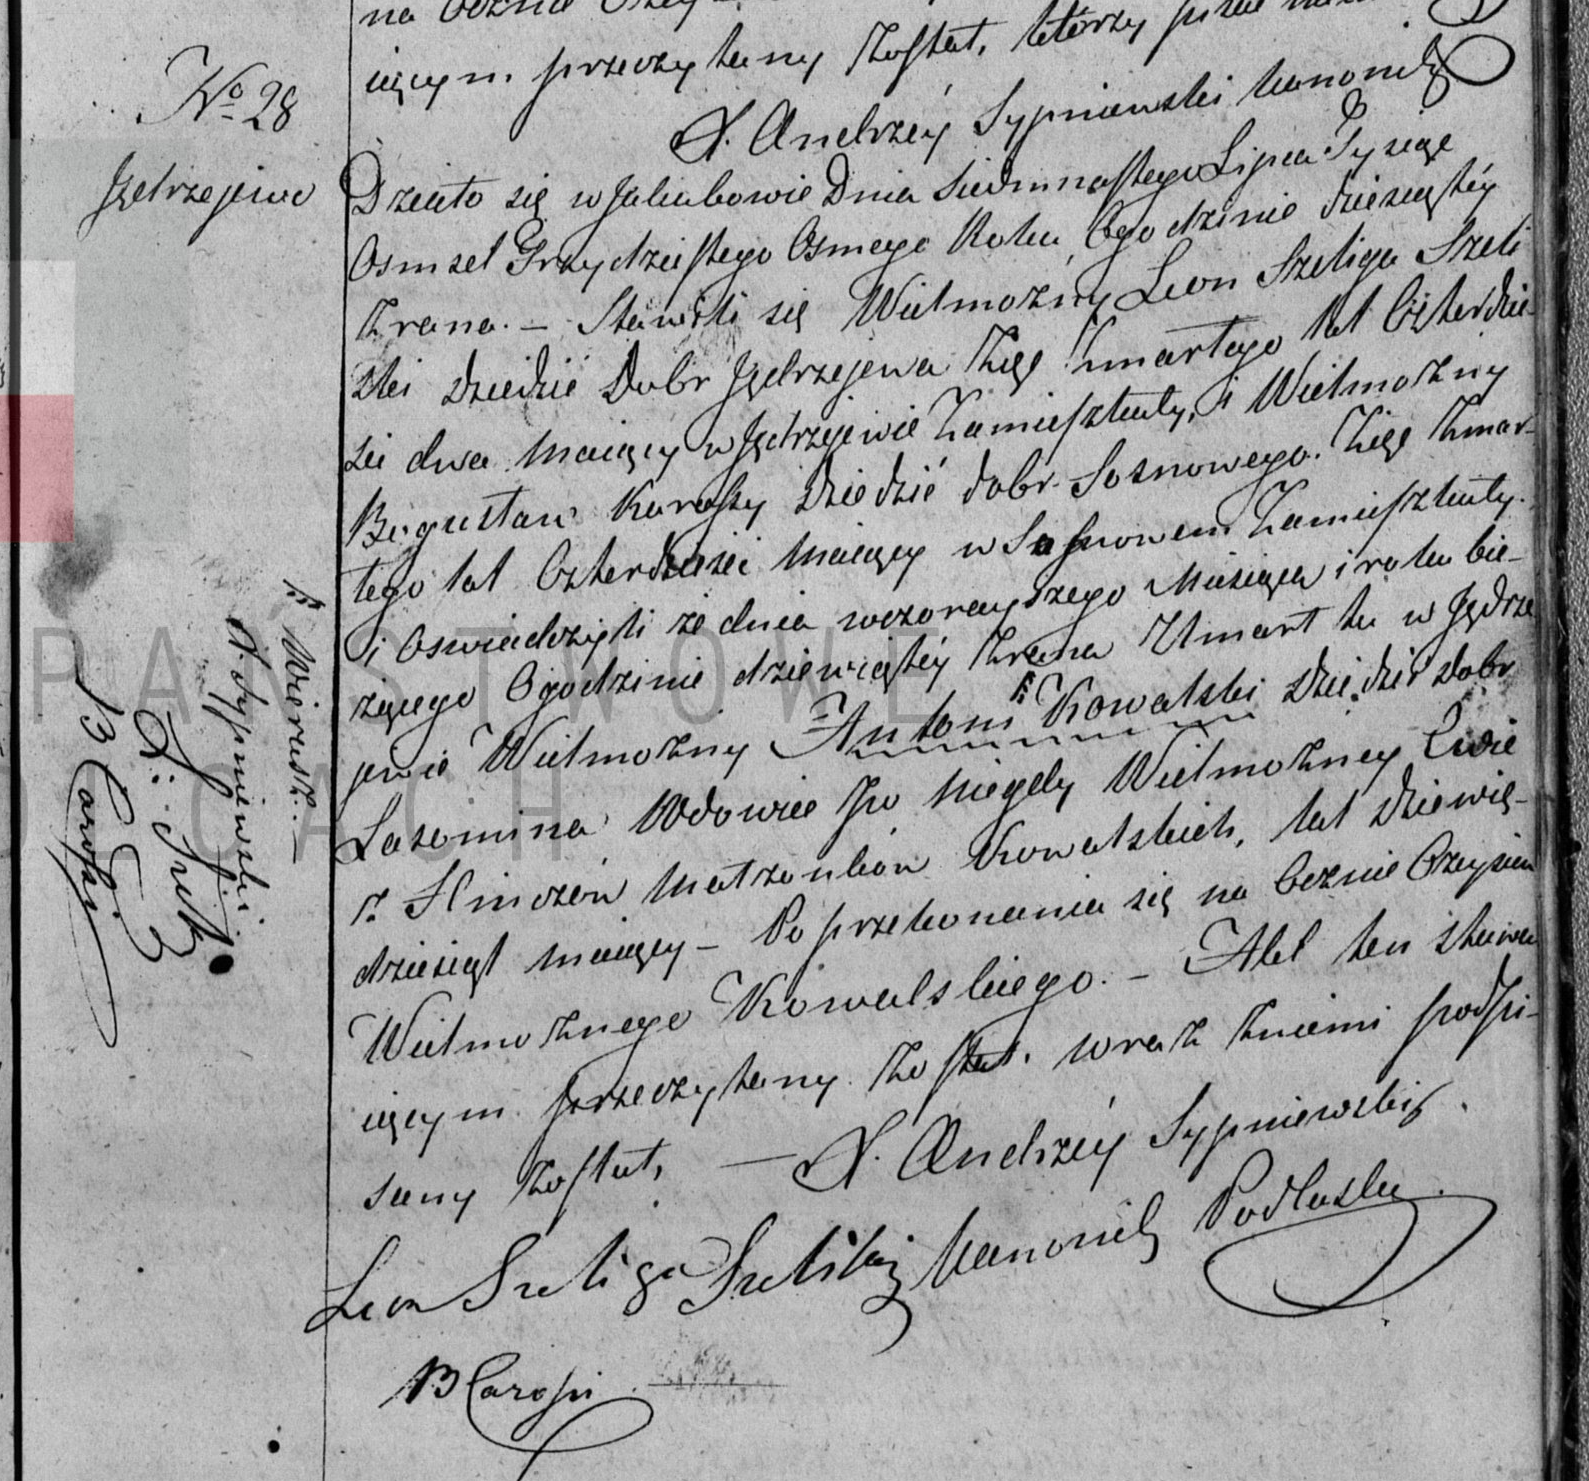 na Ocznie
iącym przeczytany Został, którzy
X. Andrzéy Sypniewski Kanonik
No 28
Jędrzejewo
Działo się w Jakubowie Dnia Siedmnastego Lipca Tysiąc
Osmset Trzydziestego Osmego Roku, O godzinie dziesiątéy
Zrana. – Stawili się Wielmożny Leon Szeliga Szeli
ski dziedzic Dobr Jędrzejewa Zięć Zmarłego lat Czterdzie
sci dwa maiący w Jędrzejewie Zamieszkały, i Wielmożny
Bogusław Karassy dziedzić dobr Sosnowego. Zięć Zmar-
łego lat Czterdzieści maiący w Sosnowem Zamieszkały.
i Oswiadczyli że dnia wczorayszego Miesiąca i roku bie-
żącego O godzinie dziewiątéy Zrana Umarł tu w Jędrze
jewie Wielmożny Antoni Kowalski dziedzic dobr
Lasomina Wdowiec po niegdy Wielmożney Ewie
z Hinczów Małżonków Kowalskich, lat dziewię-
dziesiąt maiący – Po przekonaniu się na Ocznie O zgonie
Wielmożnego Kowalskiego. – Akt ten stawa
iącym przeczytany Został. wraz Zniemi podpi-
sany Został, — X. Andrzéy Sypniewski
Kanonik Podlaski
Leon Szeliga Szeliski
B Carossi
Wierusz. –
X. Sypniewski
B Carossi